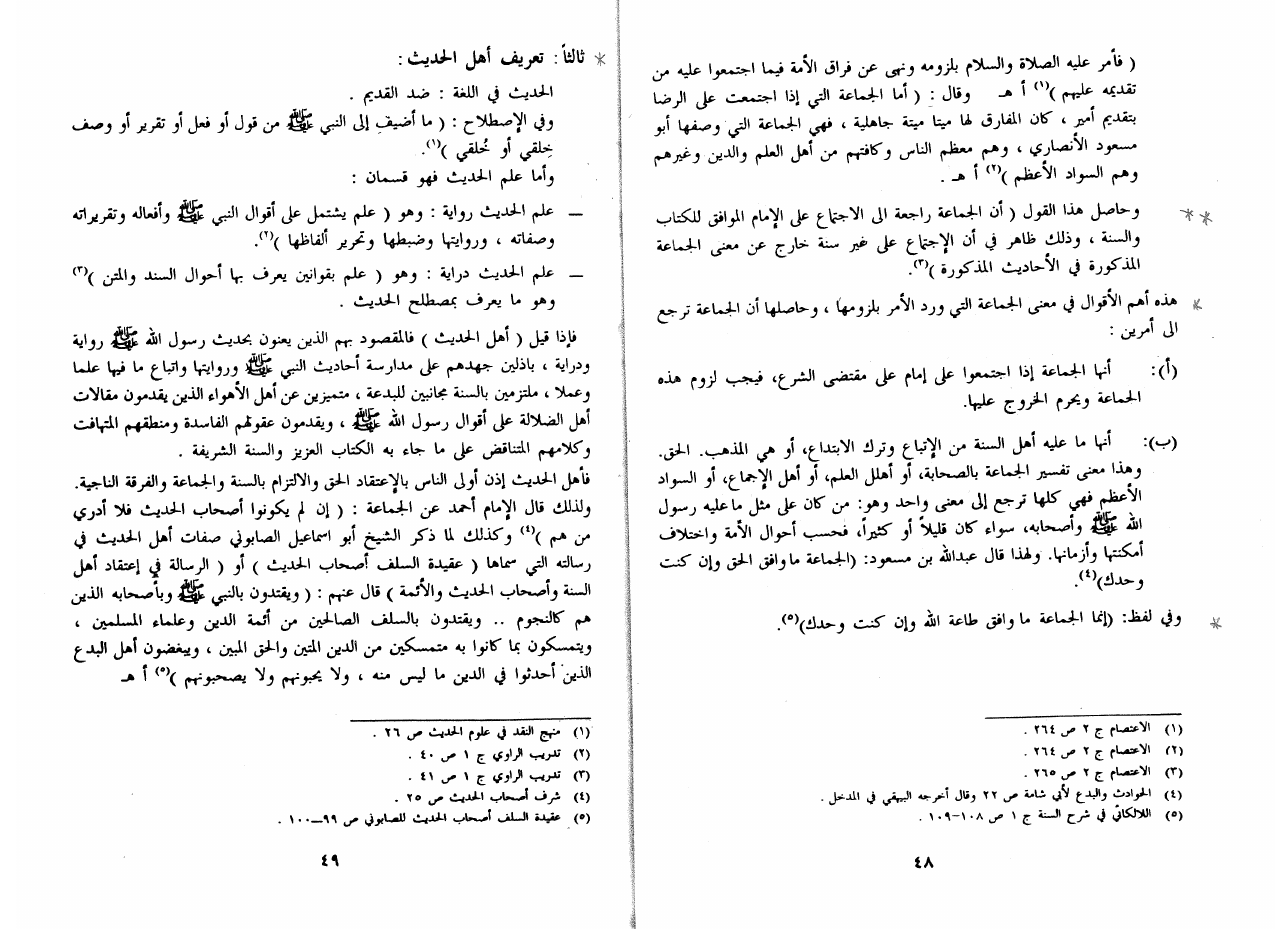 ( فأمر عليه الصلاة والسلام بلزومه ونهى عن فراق الأمة فيما اجتمعوا عليه من
تقديمه عليهم )(١) أ هـ وقال : ( أما الجماعة التي إذا اجتمعت على الرضا
بتقديم أمير ، كان المفارق لها ميتا ميتة جاهلية ، فهي الجماعة التي وصفها أبو
مسعود الأنصاري ، وهم معظم الناس وكافتهم من أهل العلم والدين وغيرهم
وهم السواد الأعظم )(٢) أ هـ .
وحاصل هذا القول ( أن الجماعة راجعة الى الاجتماع على الإمام الموافق للكتاب
والسنة ، وذلك ظاهر في أن الإجتماع على غير سنة خارج عن معنى الجماعة
المذكورة في الأحاديث المذكورة )(٣).
هذه أهم الأقوال في معنى الجماعة التي ورد الأمر بلزومها ، وحاصلها أن الجماعة ترجع
الى أمرين :
(أ): أنها الجماعة إذا اجتمعوا على إمام على مقتضى الشرع، فيجب لزوم هذه
الجماعة ويحرم الخروج عليها.
(ب): أنها ما عليه أهل السنة من الإتباع وترك الابتداع، أو هي المذهب. الحق.
وهذا معنى تفسير الجماعة بالصحابة، أو أهلل العلم، أو أهل الإجماع، أو السواد
الأعظم فهي كلها ترجع إلى معنى واحد وهو: من كان على مثل ماعليه رسول
الله ﷺ وأصحابه، سواء كان قليلاً أو كثيراً، فحسب أحوال الأمة واختلاف
أمكنتها وأزمانها. ولهذا قال عبدالله بن مسعود: (الجماعة ماوافق الحق وإن كنت
وحدك)(٤).
وفي لفظ: (إنما الجماعة ماوافق طاعة الله وإن كنت وحدك)(٥).
(١) الاعتصام ج ٢ ص ٢٦٤ .
(٢) الاعتصام ج ٢ ص ٢٦٤ .
(٣) الاعتصام ج ٢ ص ٢٦٥ .
(٤) الحوادث والبدع لأبي شامة ص ٢٢ وقال أخرجه البيهقي في المدخل .
(٥) اللالكائي في شرح السنة ج ١ ص ١٠٨–١٠٩ .
٤٨
ثالثاً : تعريف أهل الحديث :
الحديث في اللغة : ضد القديم .
وفي الإصطلاح : ( ما أضيف إلى النبي ﷺ من قول أو فعل أو تقرير أو وصف
خِلقي أو خُلقي )(١).
وأما علم الحديث فهو قسمان :
— علم الحديث رواية : وهو ( علم يشتمل على أقوال النبي ﷺ وأفعاله وتقريراته
وصفاته ، وروايتها وضبطها وتحرير ألفاظها )(٢).
— علم الحديث دراية : وهو ( علم بقوانين يعرف بها أحوال السند والمتن )(٣)
وهو ما يعرف بمصطلح الحديث .
فإذا قيل ( أهل الحديث ) فالمقصود بهم الذين يعنون بحديث رسول الله ﷺ رواية
ودراية ، باذلين جهدهم على مدارسة أحاديث النبي ﷺ وروايتها واتباع ما فيها علما
وعملا ، ملتزمين بالسنة مجانبين للبدعة ، متميزين عن أهل الأهواء الذين يقدمون مقالات
أهل الضلالة على أقوال رسول الله ﷺ ، ويقدمون عقولهم الفاسدة ومنطقهم المتهافت
وكلامهم المتناقض على ما جاء به الكتاب العزيز والسنة الشريفة .
فأهل الحديث إذن أولى الناس بالإعتقاد الحق والالتزام بالسنة والجماعة والفرقة الناجية.
ولذلك قال الإمام أحمد عن الجماعة : ( إن لم يكونوا أصحاب الحديث فلا أدري
من هم )(٤) وكذلك لما ذكر الشيخ أبو اسماعيل الصابوني صفات أهل الحديث في
رسالته التي سماها ( عقيدة السلف أصحاب الحديث ) أو ( الرسالة في إعتقاد أهل
السنة وأصحاب الحديث والأئمة ) قال عنهم : ( ويقتدون بالنبي ﷺ وبأصحابه الذين
هم كالنجوم .. ويقتدون بالسلف الصالحين من أئمة الدين وعلماء المسلمين ،
ويتمسكون بما كانوا به متمسكين من الدين المتين والحق المبين ، ويبغضون أهل البدع
الذين أحدثوا في الدين ما ليس منه ، ولا يحبونهم ولا يصحبونهم )(٥) أ هـ
(١) منهج النقد في علوم الحديث ص ٢٦ .
(٢) تدريب الراوي ج ١ ص ٤٠ .
(٣) تدريب الراوي ج ١ ص ٤١ .
(٤) شرف أصحاب الحديث ص ٢٥ .
(٥) عقيدة السلف أصحاب الحديث للصابوني ص ٩٩—١٠٠ .
٤٩